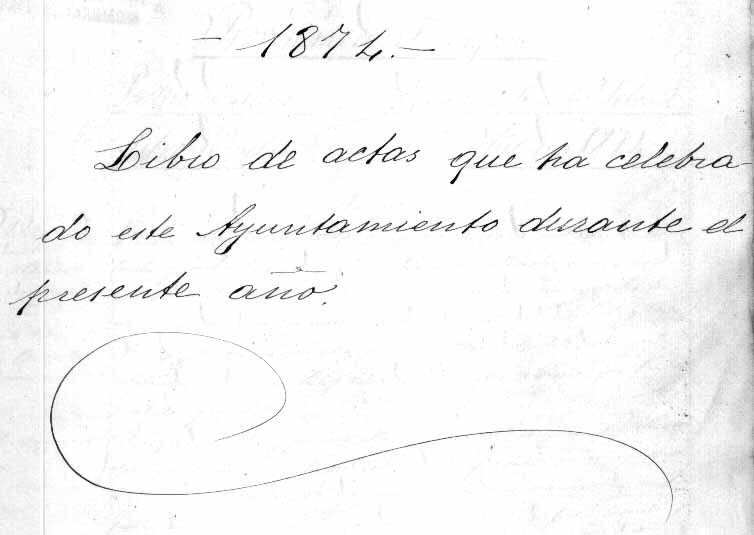 - 1874. -
Libro de actas que ha celebra-
do este Ayuntamiento durante el
presente año.